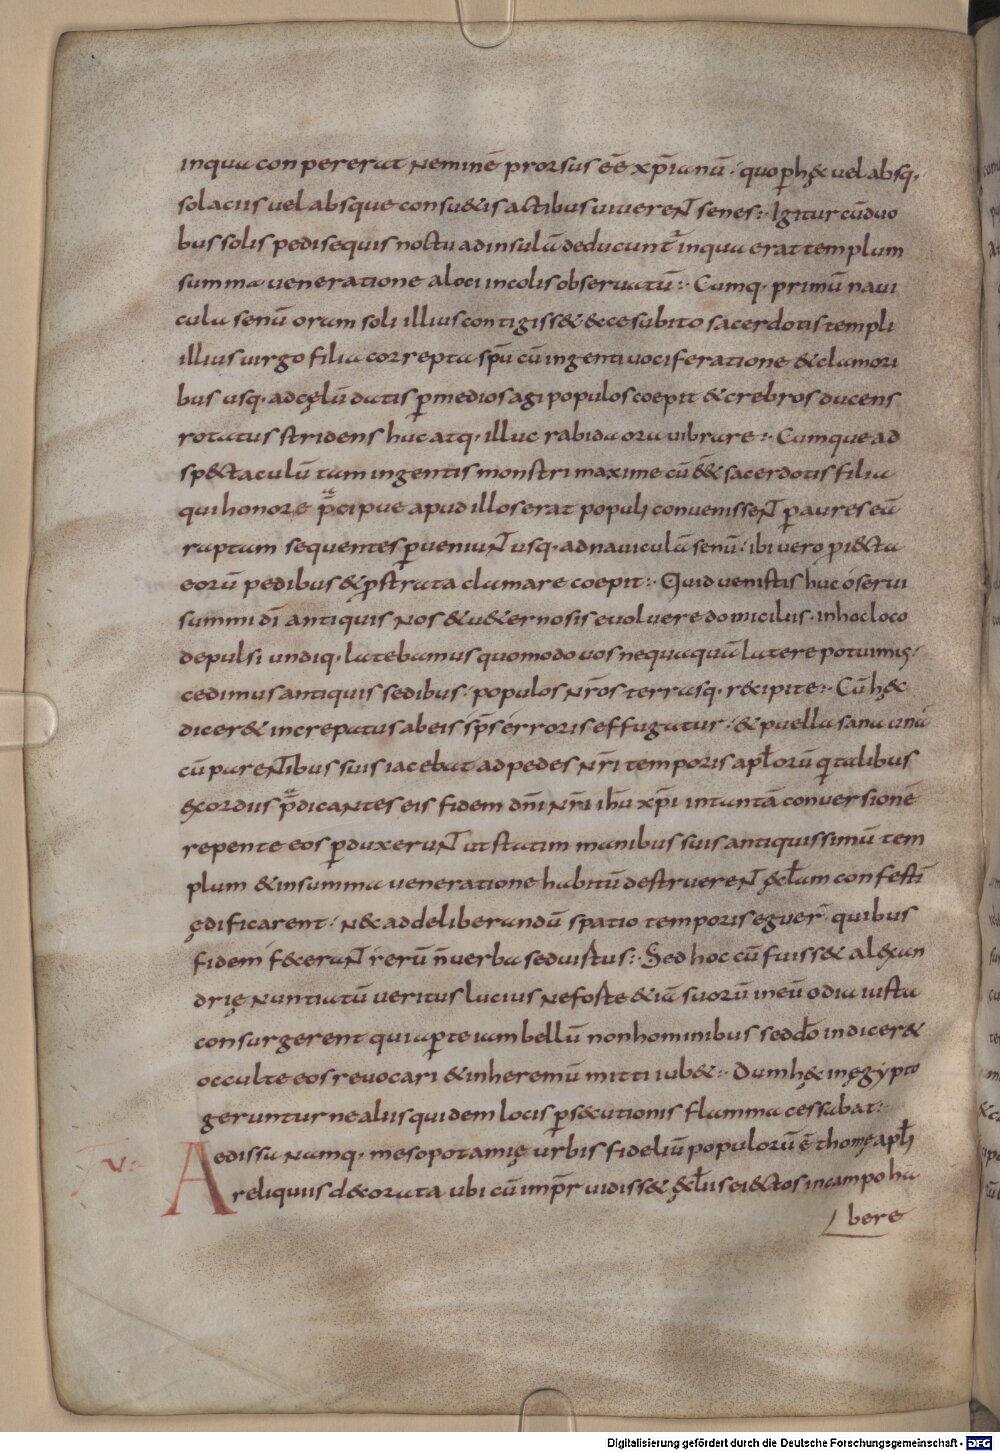 inqua conpererat neminē prorsus eē xp̄ianū. quo ꝑhęc vel absq;
solaciis vel absque consuetis actibus uiuerent senes:. Igitur cū duo
bus solis pedisequis noctu ad insulā deducunt̄ in qua erat templum
summa ueneratione a loci incolis obseruatū:. Cumq; primū naui
cula senū oram soli illius contigisset ecce subito sacerdotis templi
illius uirgo filia correpta sp̄u cū ingenti uociferatione et clamori
bus usq; ad cęlū datis ꝑ medios agi populos coepit et crebros ducens
rotatus stridens huc atq; illuc rabida ora uibrare:. Cumque ad
spectaculū tam ingentis monstri maxime cū eēt sacerdotis filia
qui honore p̄cipue apud illos erat populi conuenissent ꝑ aures eā
raptam sequentes ꝑueniunt usq; ad nauiculā senū. ibi vero ꝓiecta
eorū pedibus et ꝓstrata clamare coepit:. Quid uenistis huc ó serui
summi dī antiquis nos et ueternosis euoluere domiciliis. in hoc loco
depulsi undiq; latebamus quomodo uos nequaquā latere potuimus.
cedimus antiquis sedibus. populos nr̄os terrasq; recipite:. Cū hęc
diceret increpatus ab eis sp̄s erroris effugatur. et puella sana una
cū parentibus suis iacebat ad pedes nr̄i temporis apl̄orū qui talibus
exordiis p̄dicantes eis fidem dn̄i nr̄i ih̄u xp̄i in tantā conuersionē
repente eos ꝑduxerunt ut statim manibus suis antiquissimū tem
plum et in summa ueneratione habitū destruerent ęcl̄am confestī
ędificarent. nec ad deliberandū spatio temporis eguer̄ quibus
fidem fecerant rerū n̄ verba sed uistus:. Sed hoc cū fuisset alexan
drię nuntiatū ueritus lucius ne foste etiā suorū in eū odia iusta
consurgerent quia ꝑte iam bellū non hominibus sed do indiceret
occulte eos reuocari et in heremū mitti iubet:. Dum hęc in ęgypto
geruntur ne aliis quidem locis ꝑsecutionis flamma cessabat:.
V:. Aedissa namq; mesopotamię urbis fideliū populorū ē thomę apl̄i
reliquiis decorata ubi cū imp̄r uidisset ęcl̄iis eiectos in campo ha
bere
Digitalisierung gefördert durch die Deutsche Forschungsgemeinschaft - DFG